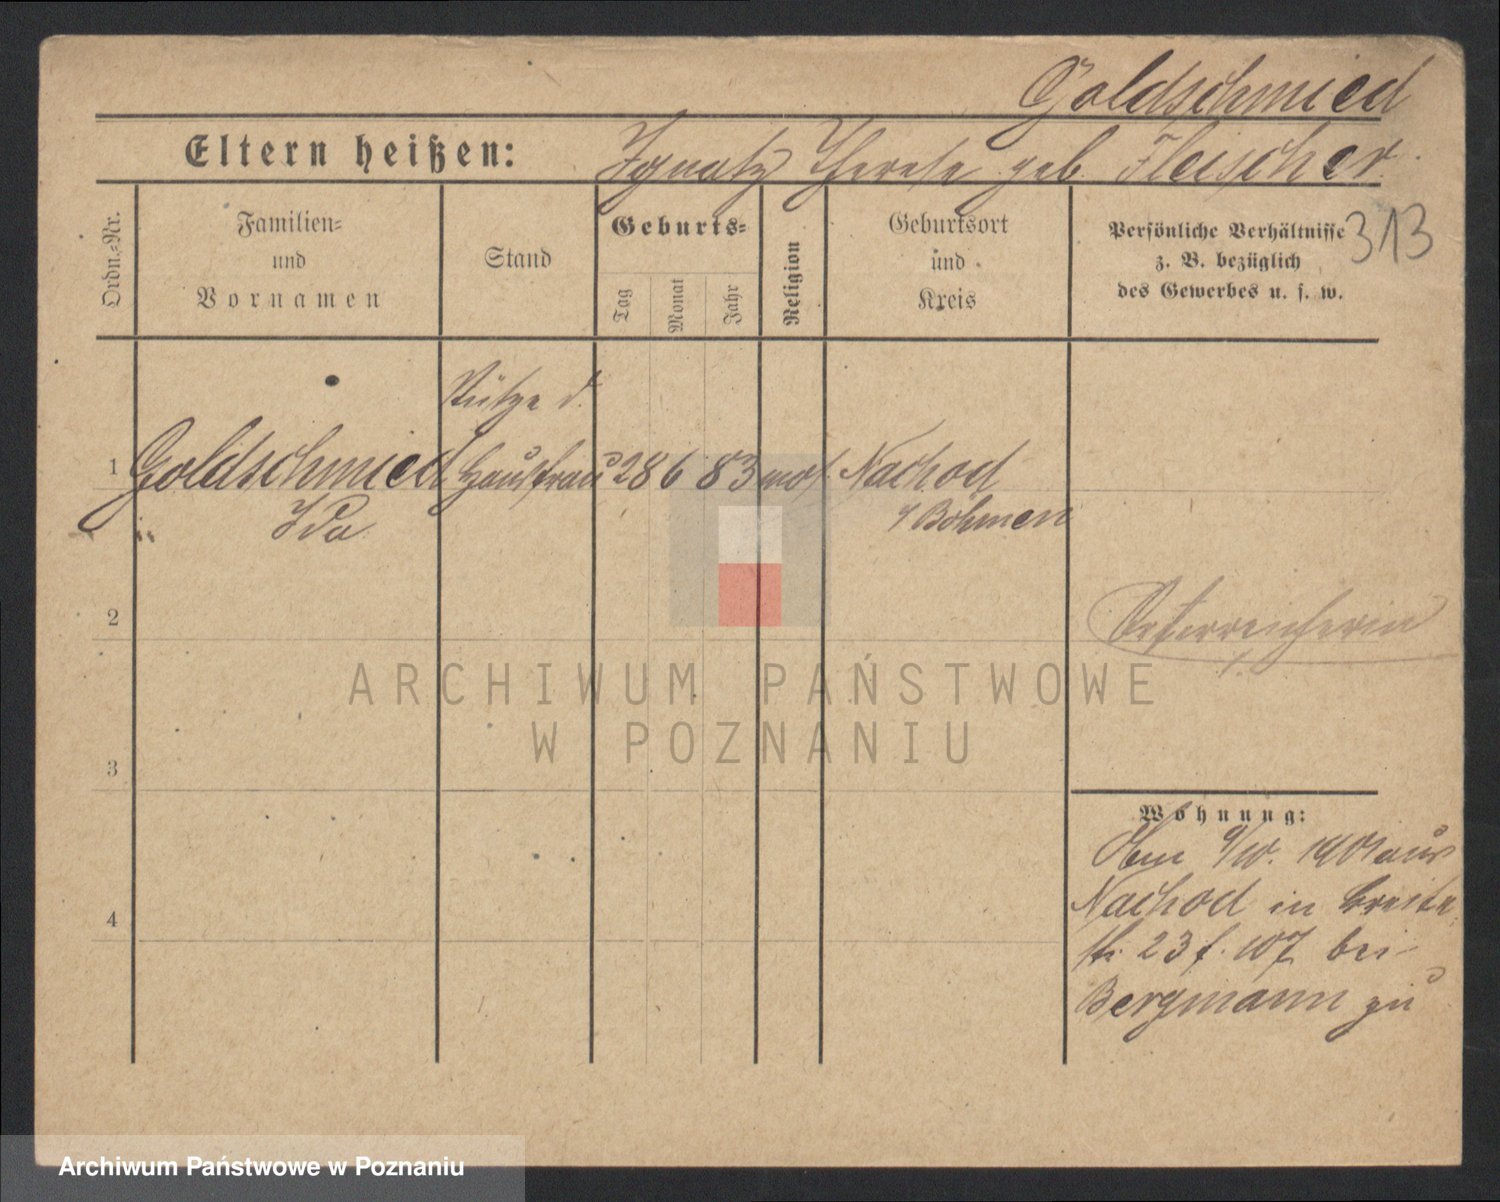 Goldschmied
Eltern heißen: Ignatz Therese geb. Fleischer
Ordn.-Nr.
Familien-
und
Vornamen
Stand
Geburts-
Tag
Monat
Jahr
Religion
Geburtsort
und
Kreis
Persönliche Verhältnisse
z. B. bezüglich
des Gewerbes u. s. w.
313
Stütze d.
1 Goldschmied Hausfrau 28 6 83 mos. Nachod
" Ida
Böhmen
2
Österreicherin
3
4
Wohnung:
9/10. 1901 aus
Nachod in Breite
str. 23 107 bei
Bergmann zu
ARCHIWUM PAŃSTWOWE
W POZNANIU
Archiwum Państwowe w Poznaniu